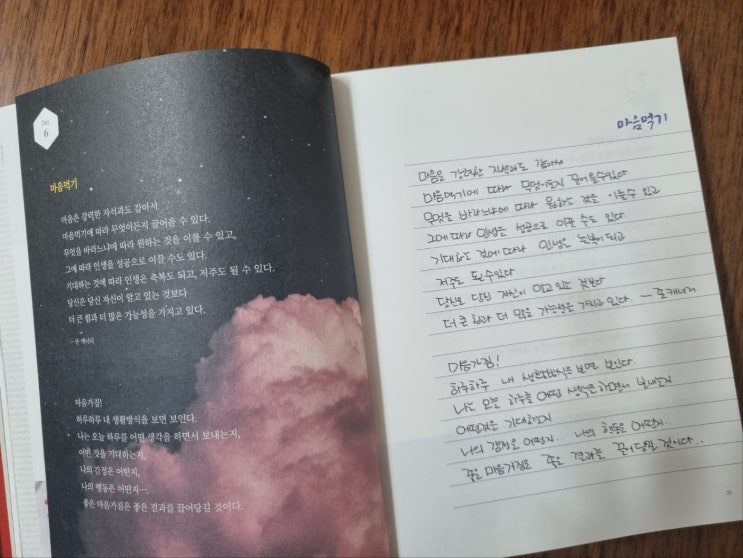 DAY
6
마음먹기
마음은 강력한 자석과도 같아서
마음먹기에 따라 무엇이든지 끌어올 수 있다.
무엇을 바라느냐에 따라 원하는 것을 이룰 수 있고,
그에 따라 인생을 성공으로 이끌 수도 있다.
기대하는 것에 따라 인생은 축복도 되고, 저주도 될 수 있다.
당신은 당신 자신이 알고 있는 것보다
더 큰 힘과 더 많은 가능성을 가지고 있다.
- 존 캐너리
마음가짐!
하루하루 내 생활방식을 보면 보인다.
나는 오늘 하루를 어떤 생각을 하면서 보내는지,
어떤 것을 기대하는지,
나의 감정은 어떤지,
나의 행동은 어떤지….
좋은 마음가짐은 좋은 결과를 끌어당길 것이다.
마음먹기
마음은 강력한 자석과도 같아서
마음먹기에 따라 무엇이든지 끌어올 수 있다
무엇을 바라느냐에 따라 원하는 것을 이룰 수 있고
그에 따라 인생을 성공으로 이끌 수도 있다
기대하는 것에 따라 인생은 축복도 되고
저주도 될 수 있다
당신은 당신 자신이 알고 있는 것보다
더 큰 힘과 더 많은 가능성을 가지고 있다. - 존 캐너리
마음가짐!
하루하루 내 생활방식을 보면 보인다.
나는 오늘 하루를 어떤 생각을 하면서 보내는지
어떤것을 기대하는지
나의 감정은 어떤지.. 나의 행동은 어떤지..
좋은 마음가짐은 좋은 결과를 끌어당길 것이다..